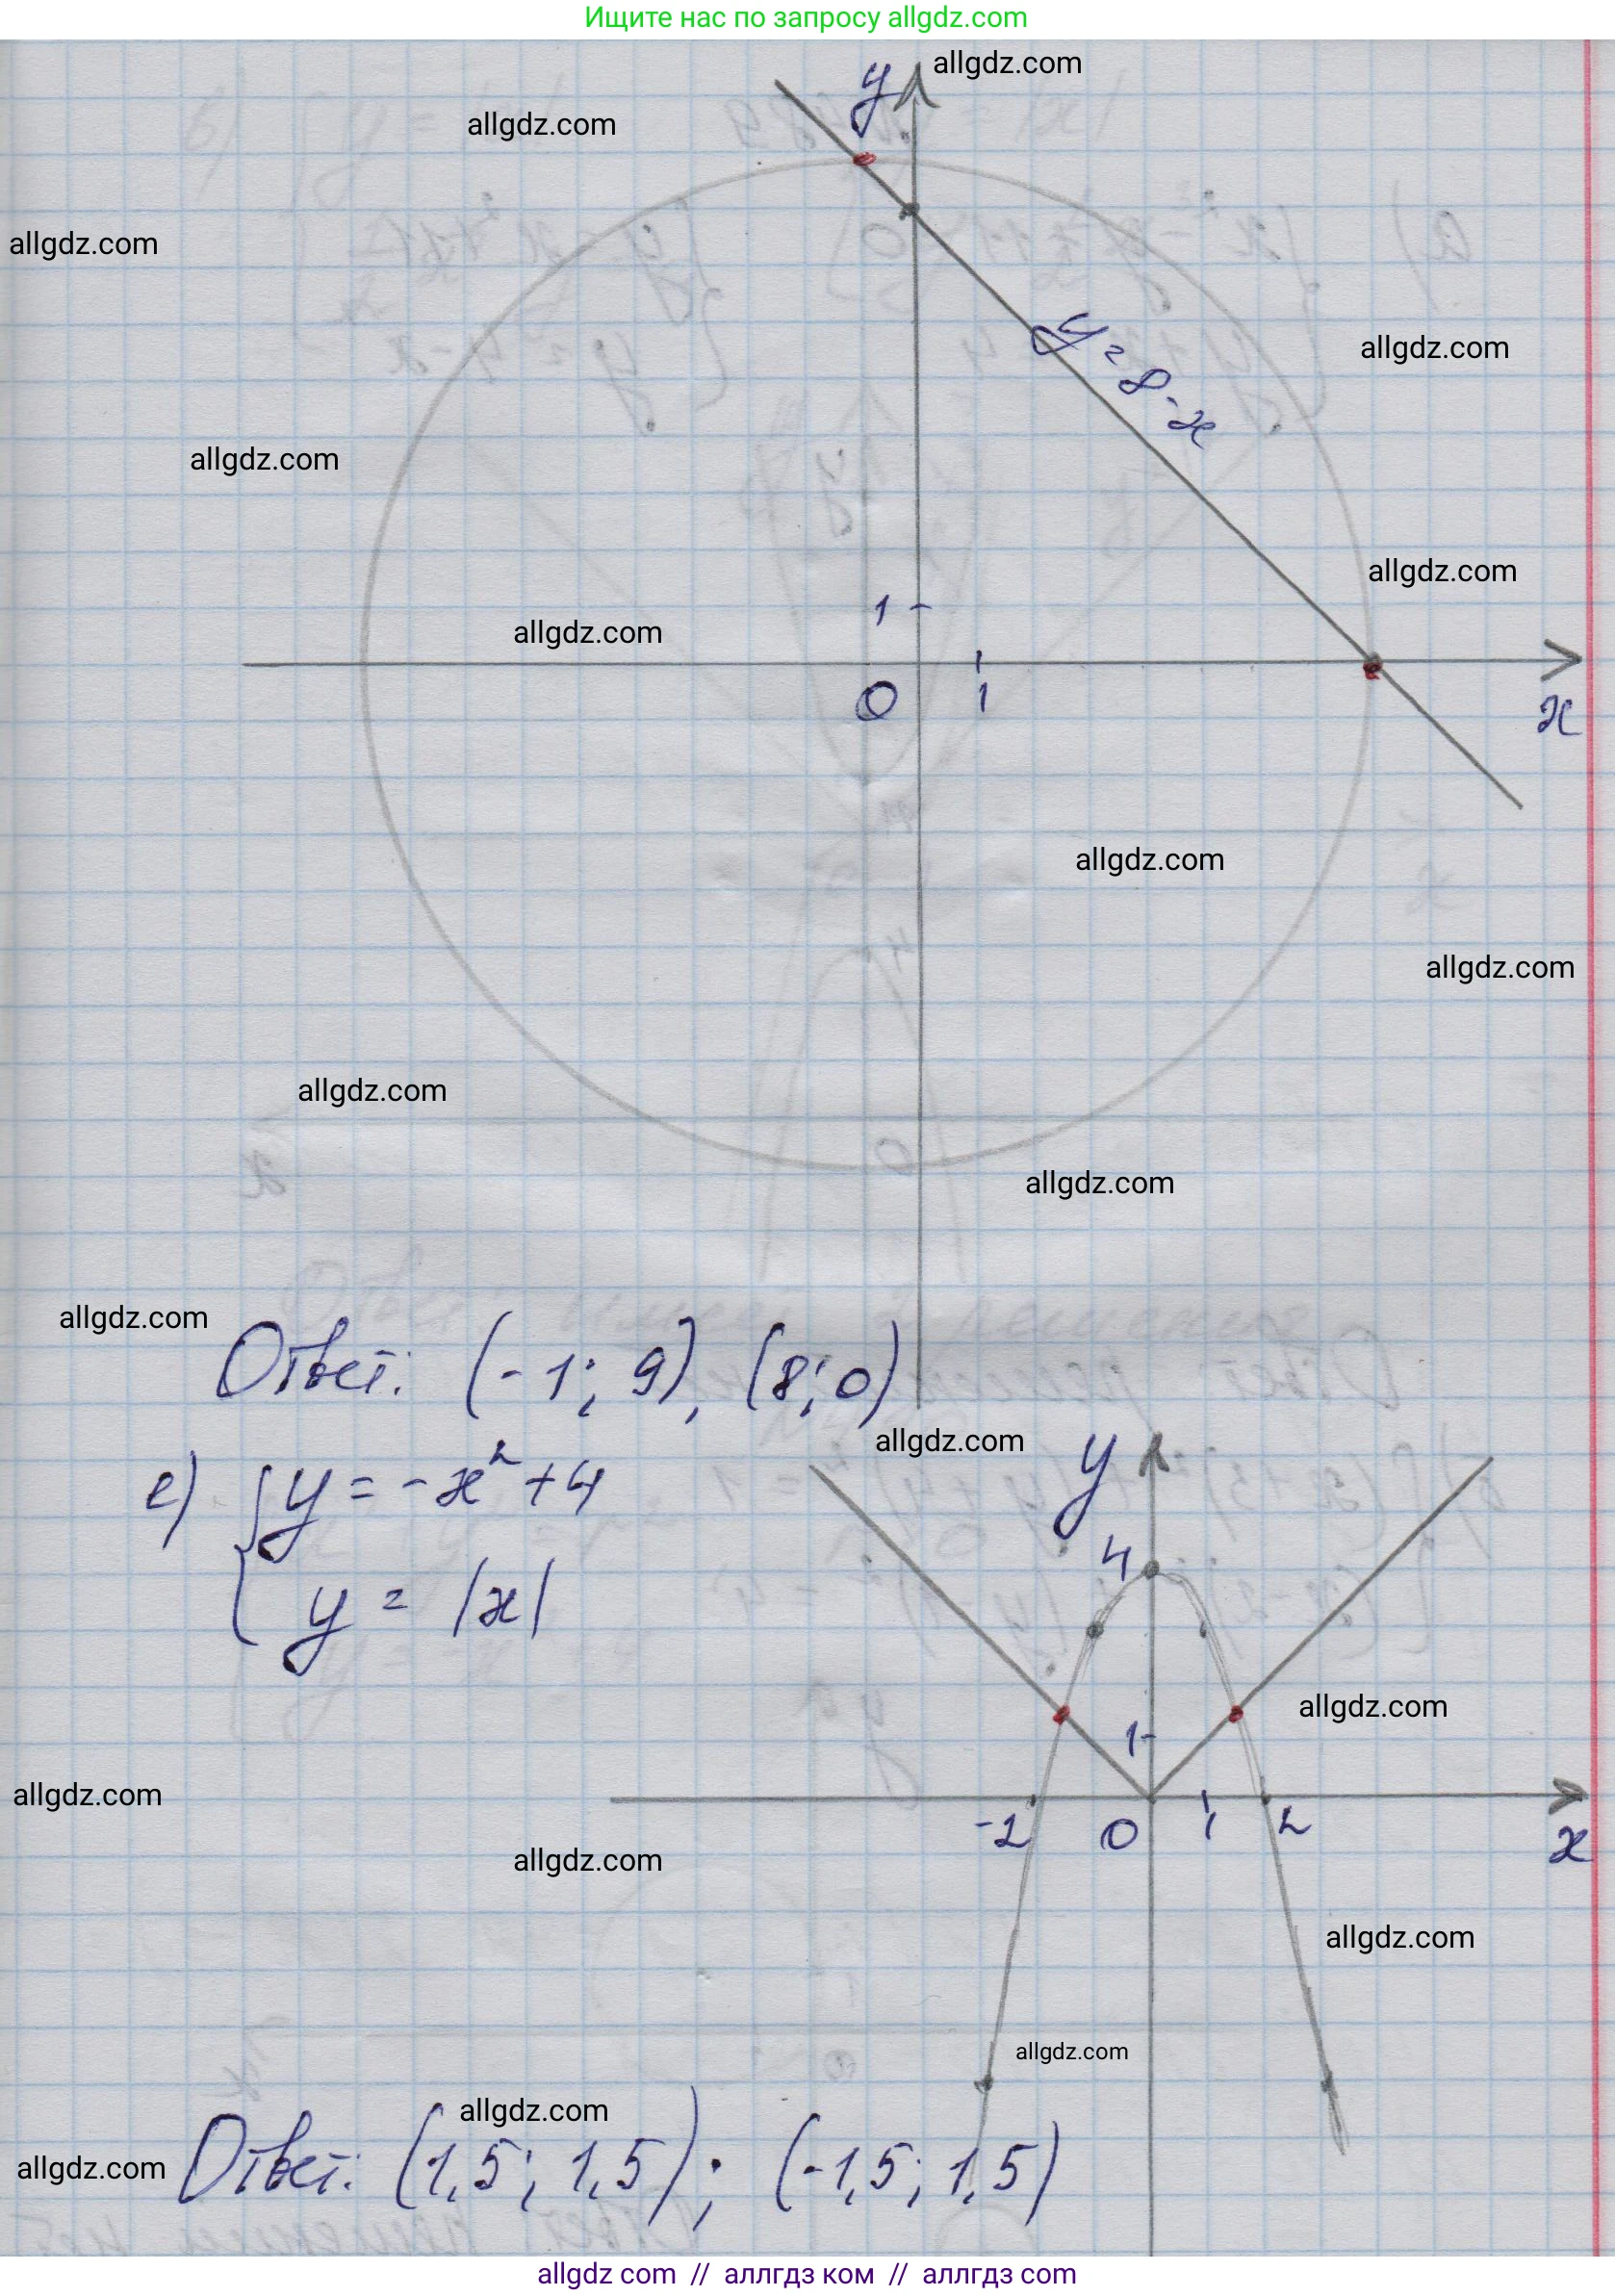 Ищите нас по запросу allgdz.com
allgdz.com
y
allgdz.com
allgdz.com
y = 8 - x
allgdz.com
allgdz.com
allgdz.com
1
allgdz.com
0
1
x
allgdz.com
allgdz.com
allgdz.com
allgdz.com
allgdz.com
Ответ: (-1; 9), (8; 0)
allgdz.com
е) { y = -x² + 4
y = |x|
y
4
allgdz.com
1
allgdz.com
-2
0
1
2
x
allgdz.com
allgdz.com
allgdz.com
allgdz.com
allgdz.com
Ответ: (1,5; 1,5); (-1,5; 1,5)
allgdz com // аллгдз ком // аллгдз com